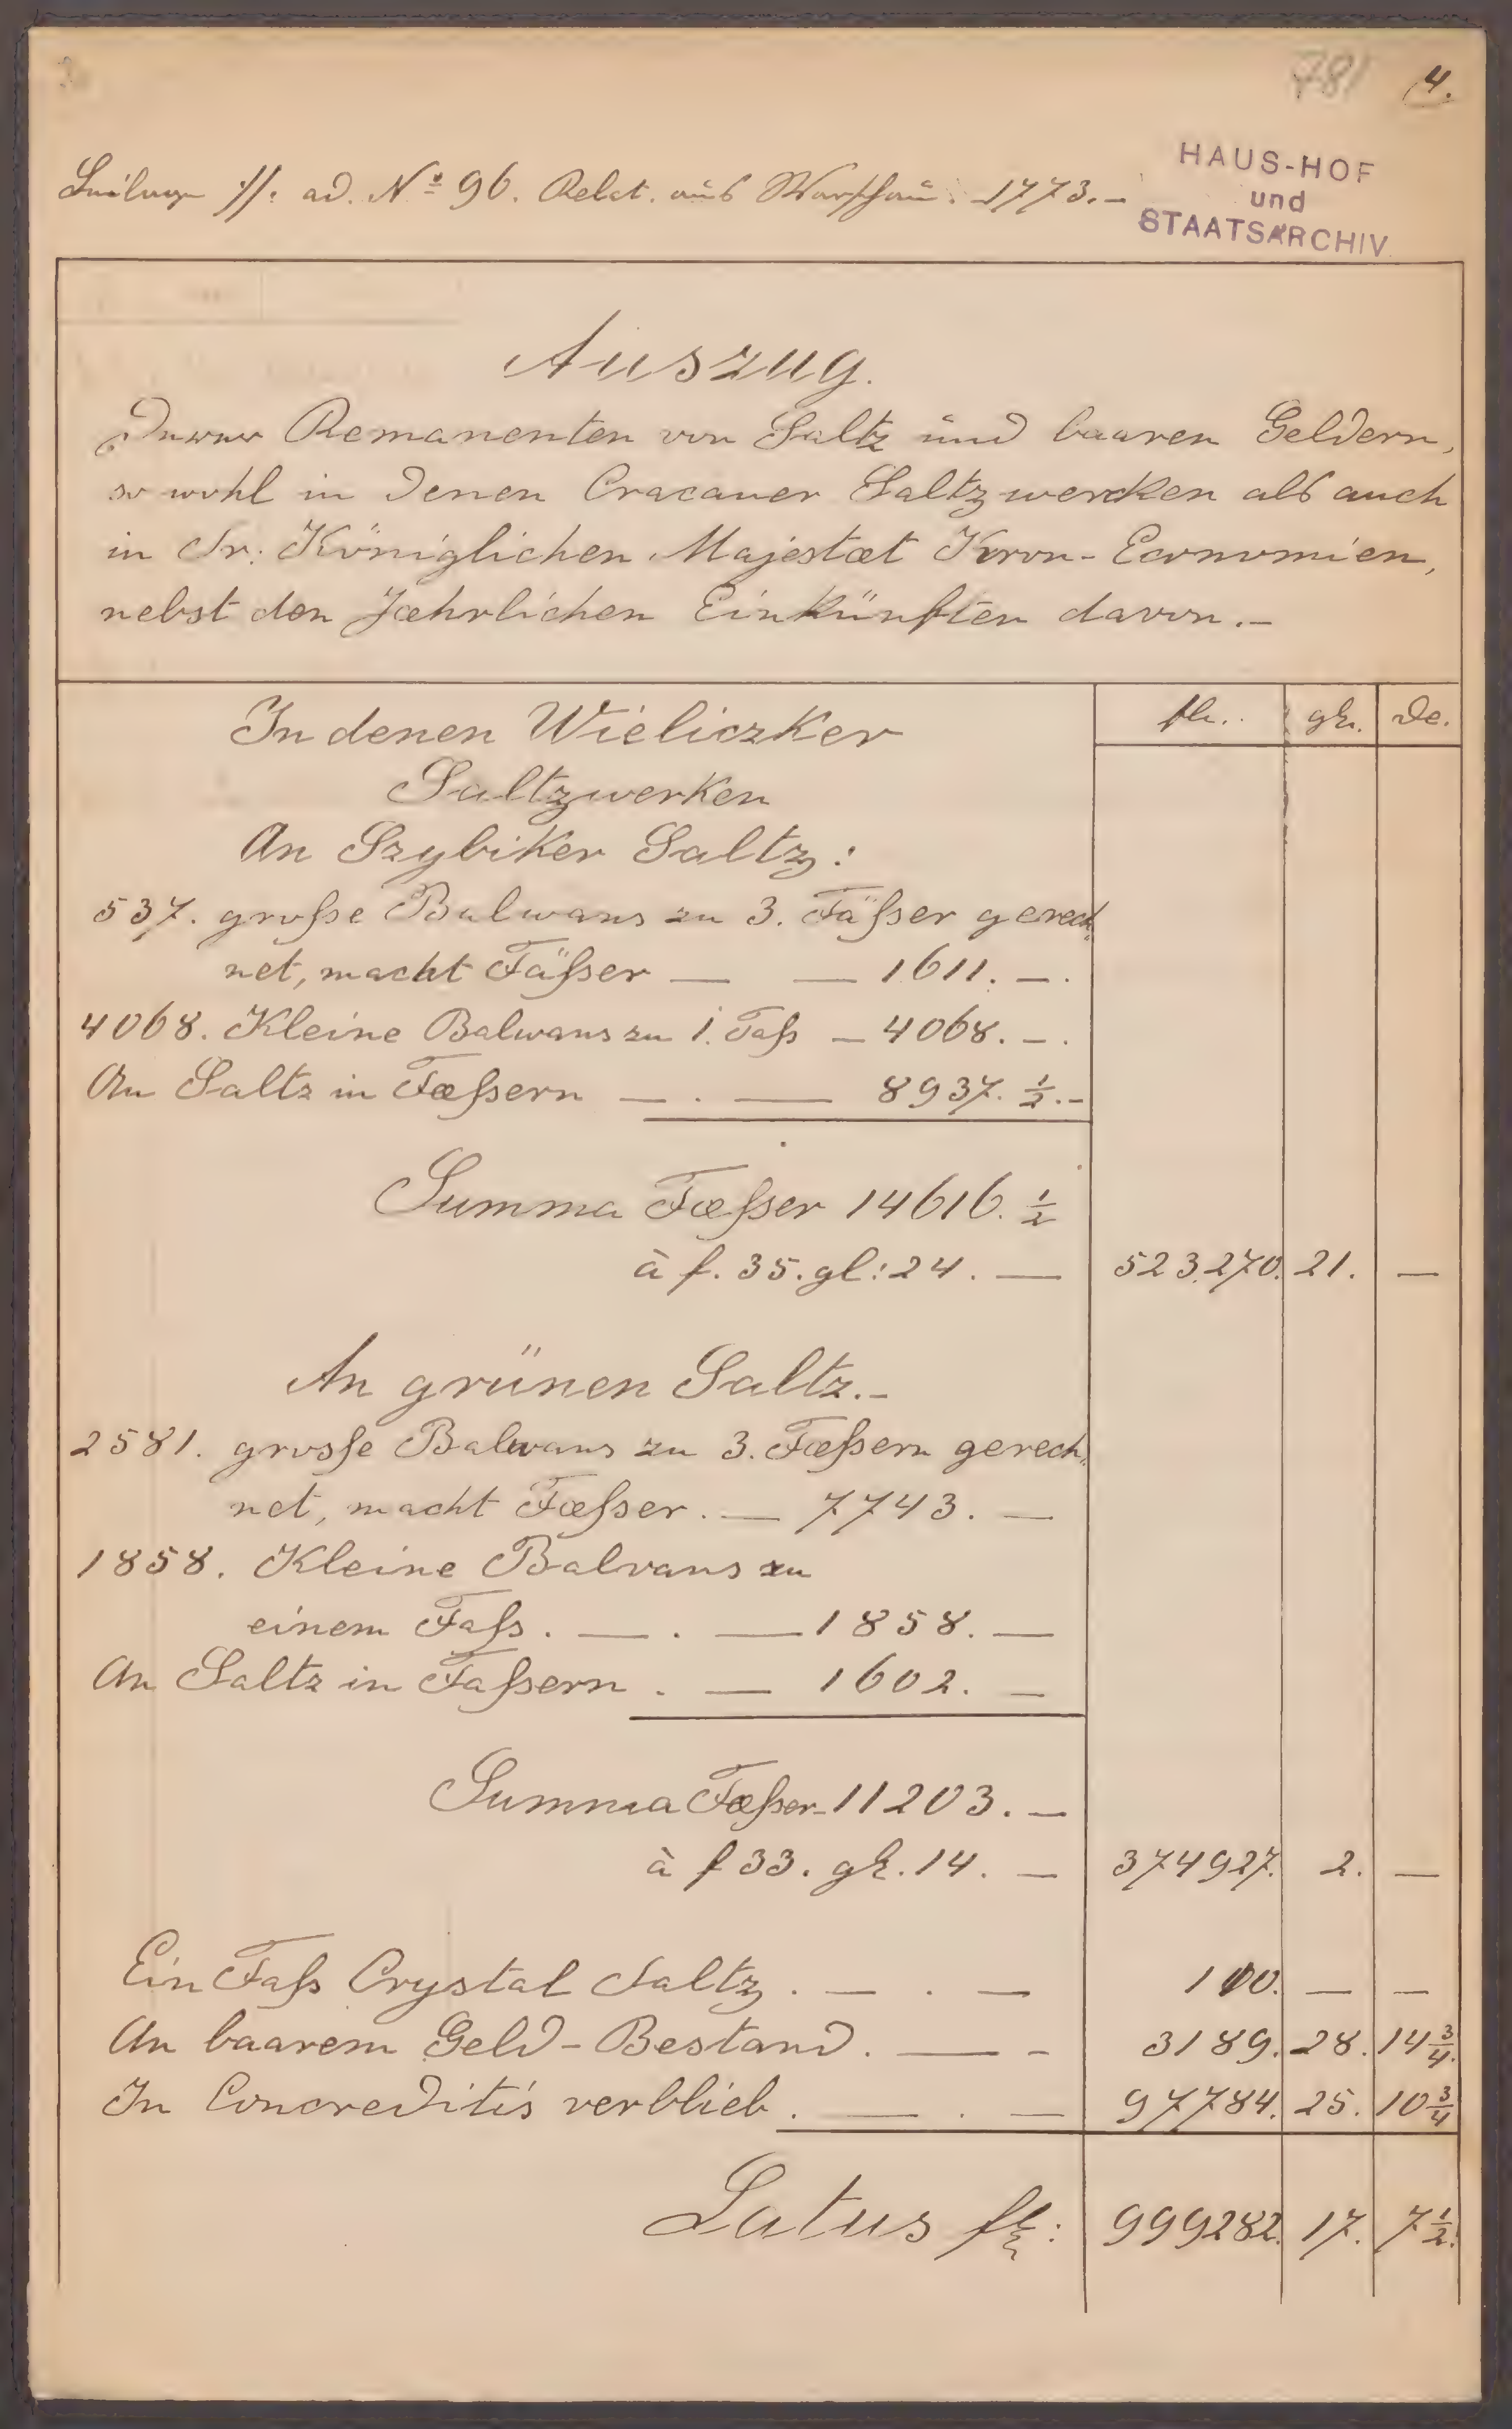 781 4.
Beilage //. ad. No 96. Relat. aus Warschau. 1773.-
HAUS-HOF
und
STAATSARCHIV
Auszug.
Derer Remanenten von Saltz und baaren Geldern,
so wohl in denen Cracauer Saltzwercken als auch
in Sr. Königlichen Majestæt Kron-Economien,
nebst den Jæhrlichen Einkünften davon.-
In denen Wieliczker
Saltzwerken
fl. gl. de.
An Szybiker Saltz:
537. große Balwans zu 3. Fäßer gerech
net, macht Fäßer — — 1611. —.
4068. Kleine Balwans zu 1. Faß — 4068. —.
An Saltz in Fæßern — . — 8937. ½.-
Summa Fæßer 14616. ½
à f. 35. gl: 24. — 523270. 21. —
An grünen Saltz.-
2581. grosse Balwans zu 3. Fæßern gerech.
net, macht Fæßer. — 7743. —
1858. Kleine Balvans zu
einem Faß. — . — 1858. —
An Saltz in Faßern . — 1602. —
Summa Fæßer - 11203. —
à f 33. gl. 14. — 374927. 2. —
Ein Faß Crystal Saltz . — . — 110. — —
An baarem Geld-Bestand. — - 3189. 28. 14¾.
In Concreditis verblieb . — . — 97784. 25. 10¾
Latus fl: 999282. 17. 7½.